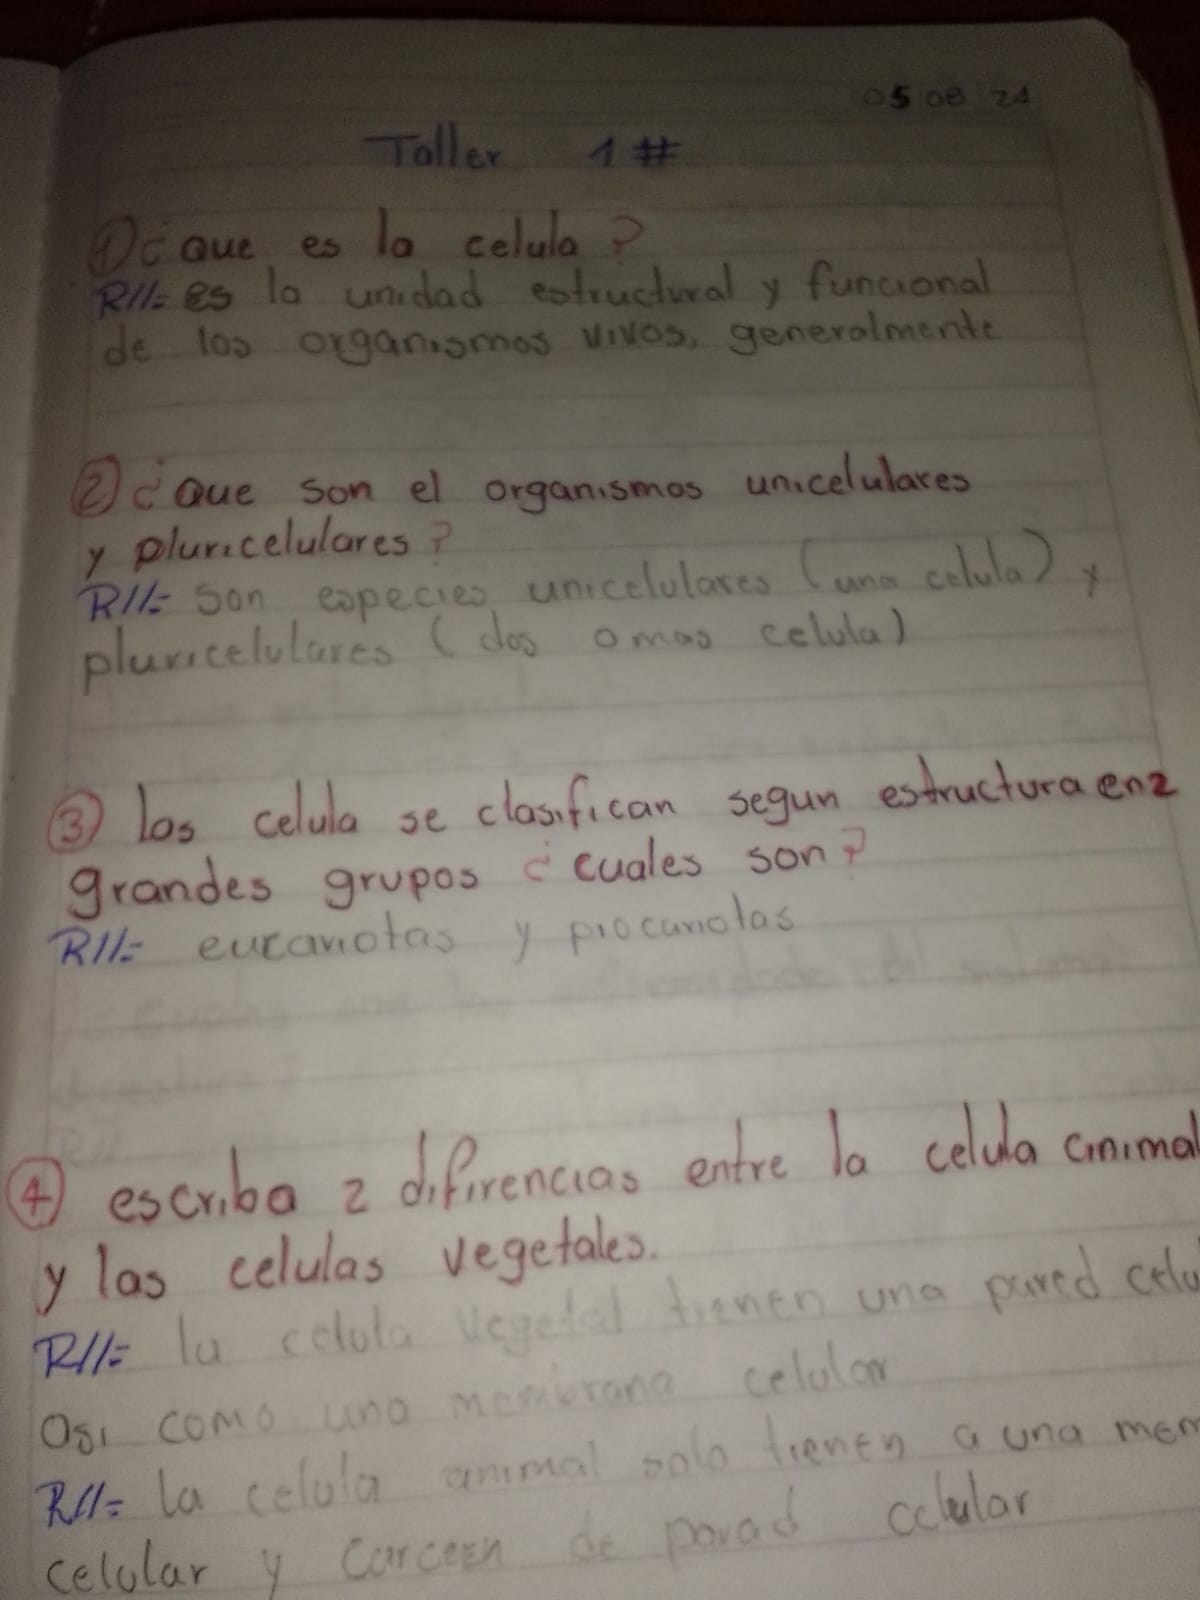 05 08 24
Taller 1#
① ¿Que es la celula?
R//= es la unidad estructural y funcional
de los organismos vivos, generalmente
② ¿Que son el organismos unicelulares
y pluricelulares?
R//= Son especies unicelulares (una celula) y
pluricelulares (dos o mas celula)
③ las celula se clasifican segun estructura en 2
grandes grupos ¿cuales son?
R//= eucariotas y procariotas
④ escriba 2 difirencias entre la celula animal
y las celulas vegetales.
R//= la celula vegetal tienen una pared celu
asi como una membrana celular
R//= la celula animal solo tienen a una mem
celular y carceen de parad celular